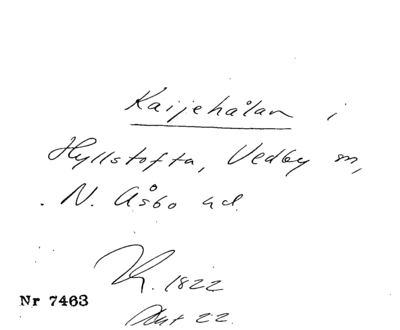 Kaijehålan i
Hyllstofta, Vedby sn,
N. Åsbo hd.
R. 1822
Nr 7463
Akt 22.